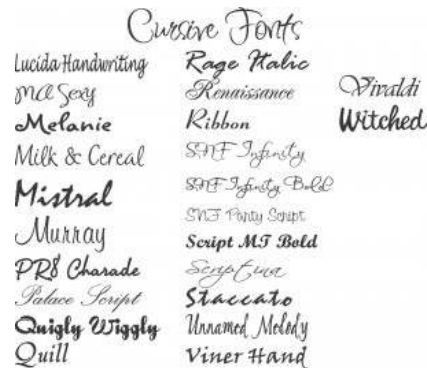 Cursive Fonts
Lucida Handwriting
MA Sexy
Melanie
Milk & Cereal
Mistral
Murray
PR8 Charade
Palace Script
Quigly Wiggly
Quill
Rage Italic
Renaissance
Ribbon
SNF Infinity
SNF Infinity Bold
SNF Party Script
Script MT Bold
Scriptina
Staccato
Unnamed Melody
Viner Hand
Vivaldi
Witched